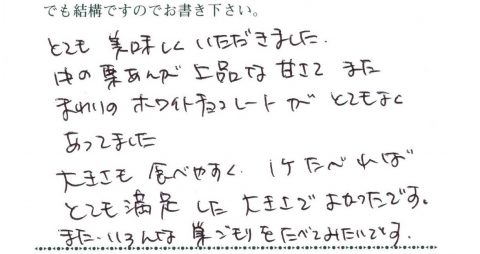 でも結構ですのでお書き下さい。
とても 美味しく いただきました.
中の 栗あんが 上品な 甘さで また
まわりの ホワイトチョコレートが とてもよく
あってました
大きさも 食べやすく. 1ケたべれば
とても 満足した 大きさで よかったです。
また. いろんな 巣ごもりをたべてみたいです.